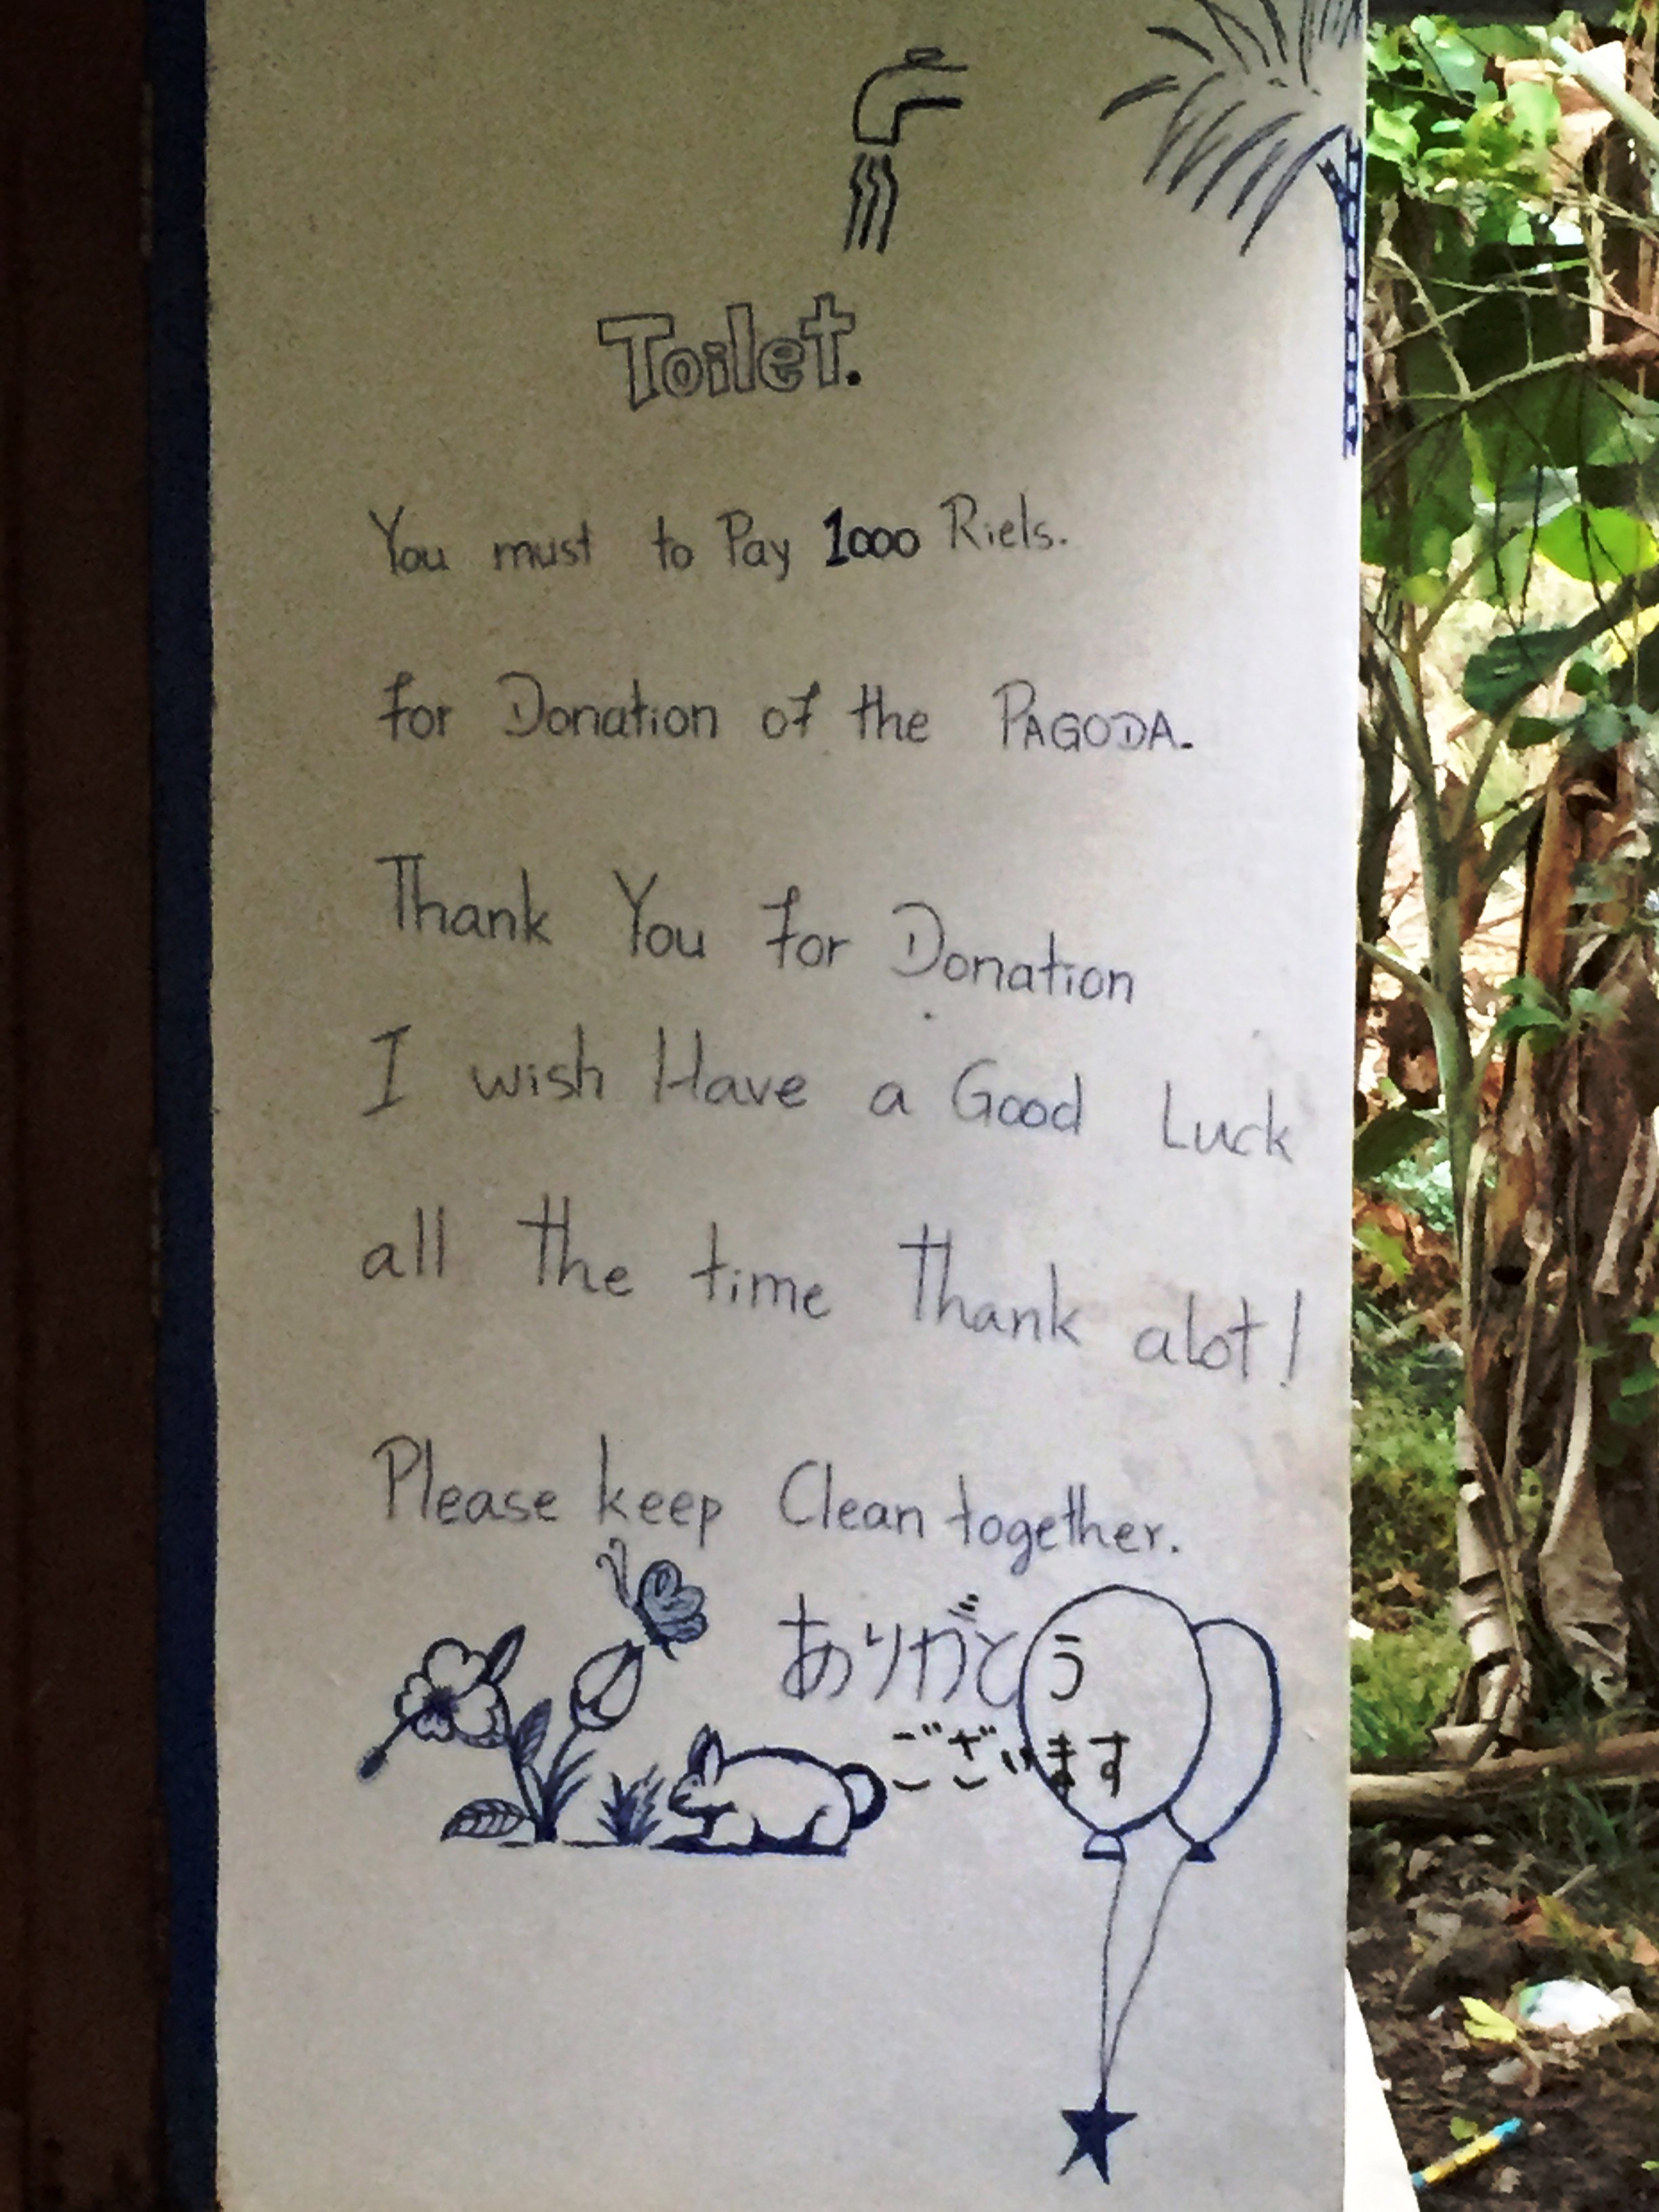 Toilet.
You must to Pay 1000 Riels.
for Donation of the PAGODA.
Thank You for Donation
I wish Have a Good Luck
all the time thank alot!
Please keep Clean together.
ありがとう
ございます